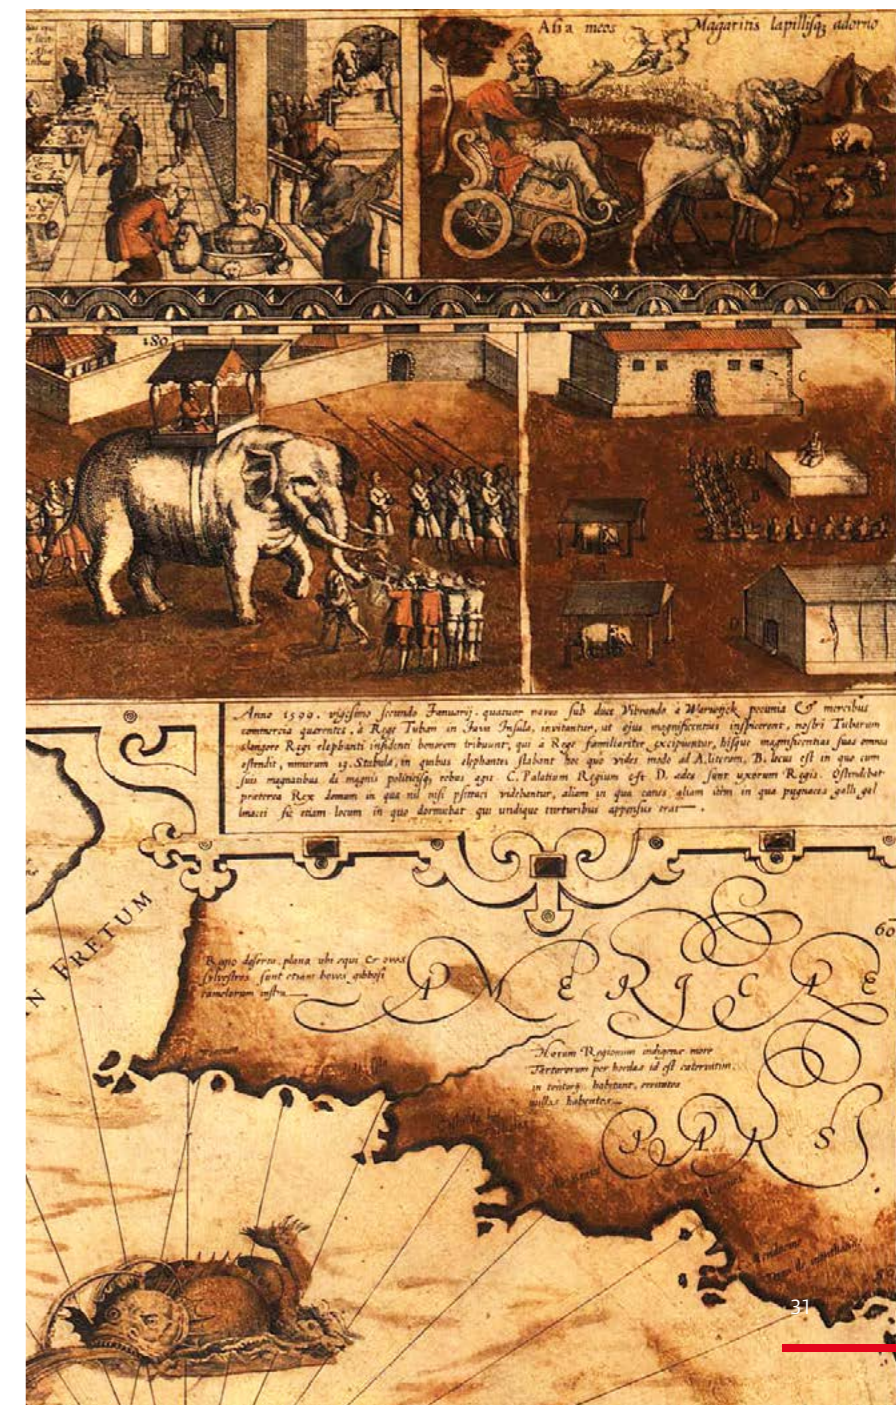 Asia meos Magaritis lapillisq3 adorno
180
C
B
A
D
Anno 1599. vigesimo secundo Januarij. quatuor naves sub duce Vibrando à Warwijck pecunia & mercibus
commercia querentes, à Rege Tuban in Java Insula, invitantur, ut ejus magnificentias inspicerent, nostri Tubarum
clangore Regi elephanti insidenti honorem tribuunt, qui à Rege familiariter excipiuntur, hisque magnificentias suas omnes
ostendit, nimirum 19. Stabula, in quibus elephantes stabant hoc quo vides modo ad A. literam, B. locus est in quo cum
suis magnatibus de magnis politicisq3 rebus agit C. Palatium Regium est. D. edes sunt uxorum Regis. Ostendebat
præterea Rex domum in qua nil nisi psittaci videbantur, aliam in qua canes aliam item in qua pugnaces galli gal
linacei sic etiam locum in quo dormiebat qui undique turturibus appensus erat
60
N FRETUM
Regio deserta plana ubi equi & oves
sylvestres sunt etiam boves gibbosi
camelorum instar
AMERICAE
Harum Regionum indigenæ more
Tartarorum per hordas id est catervatim
in tentorijs habitant, civitates
nullas habentes
PARS
31